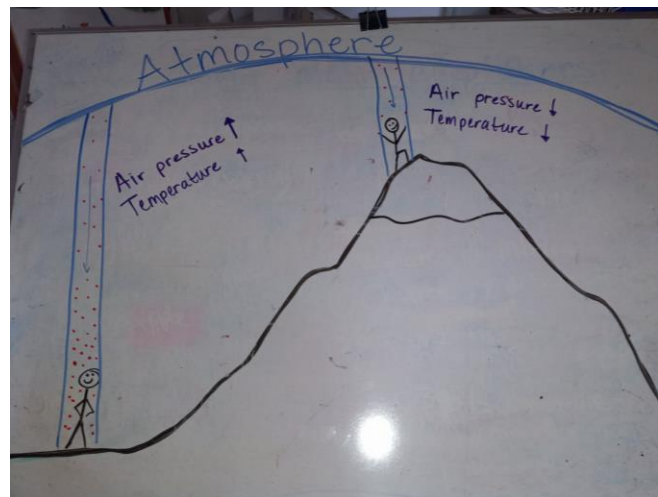 Atmosphere
Air pressure ↑
Temperature ↑
Air pressure ↓
Temperature ↓